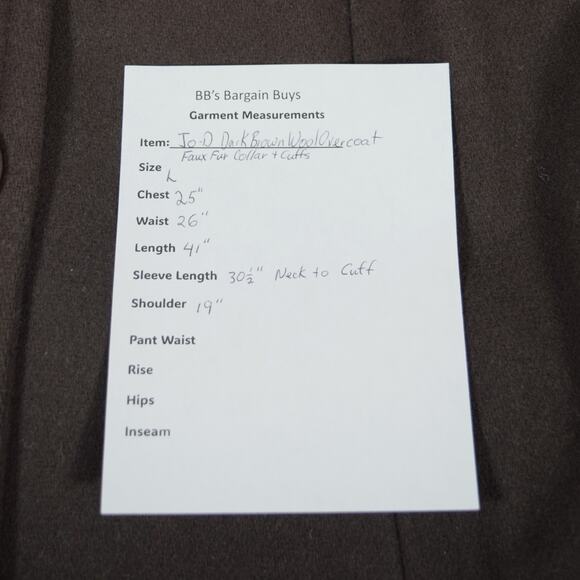 BB's Bargain Buys
Garment Measurements
Item: Jo-D Dark Brown Wool Overcoat
Faux Fur Collar + Cuffs
Size L
Chest 25"
Waist 26"
Length 41"
Sleeve Length 30 1/2" Neck to Cuff
Shoulder 19"
Pant Waist
Rise
Hips
Inseam